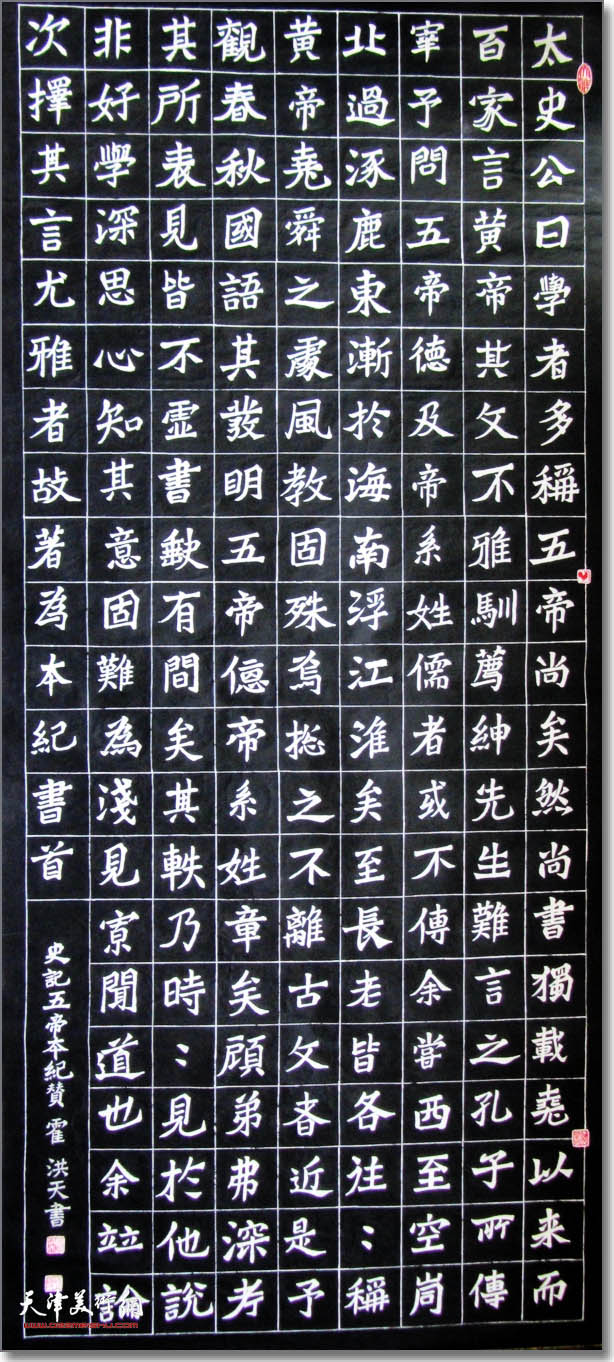 太史公曰學者多稱五帝尚矣然尚書獨載堯以来而
百家言黄帝其文不雅馴薦紳先生難言之孔子所傳
宰予問五帝德及帝系姓儒者或不傳余嘗西至空峝
北過涿鹿東漸於海南浮江淮矣至長老皆各往往稱
黄帝堯舜之處風教固殊焉揔之不離古文者近是予
觀春秋國語其發明五帝德帝系姓章矣顧弟弗深考
其所表見皆不虛書缺有間矣其軼乃時時見於他說
非好學深思心知其意固難為淺見寡聞道也余竝論
次擇其言尤雅者故著為本紀書首
史記五帝本紀贊 霍洪天書
天津美術網